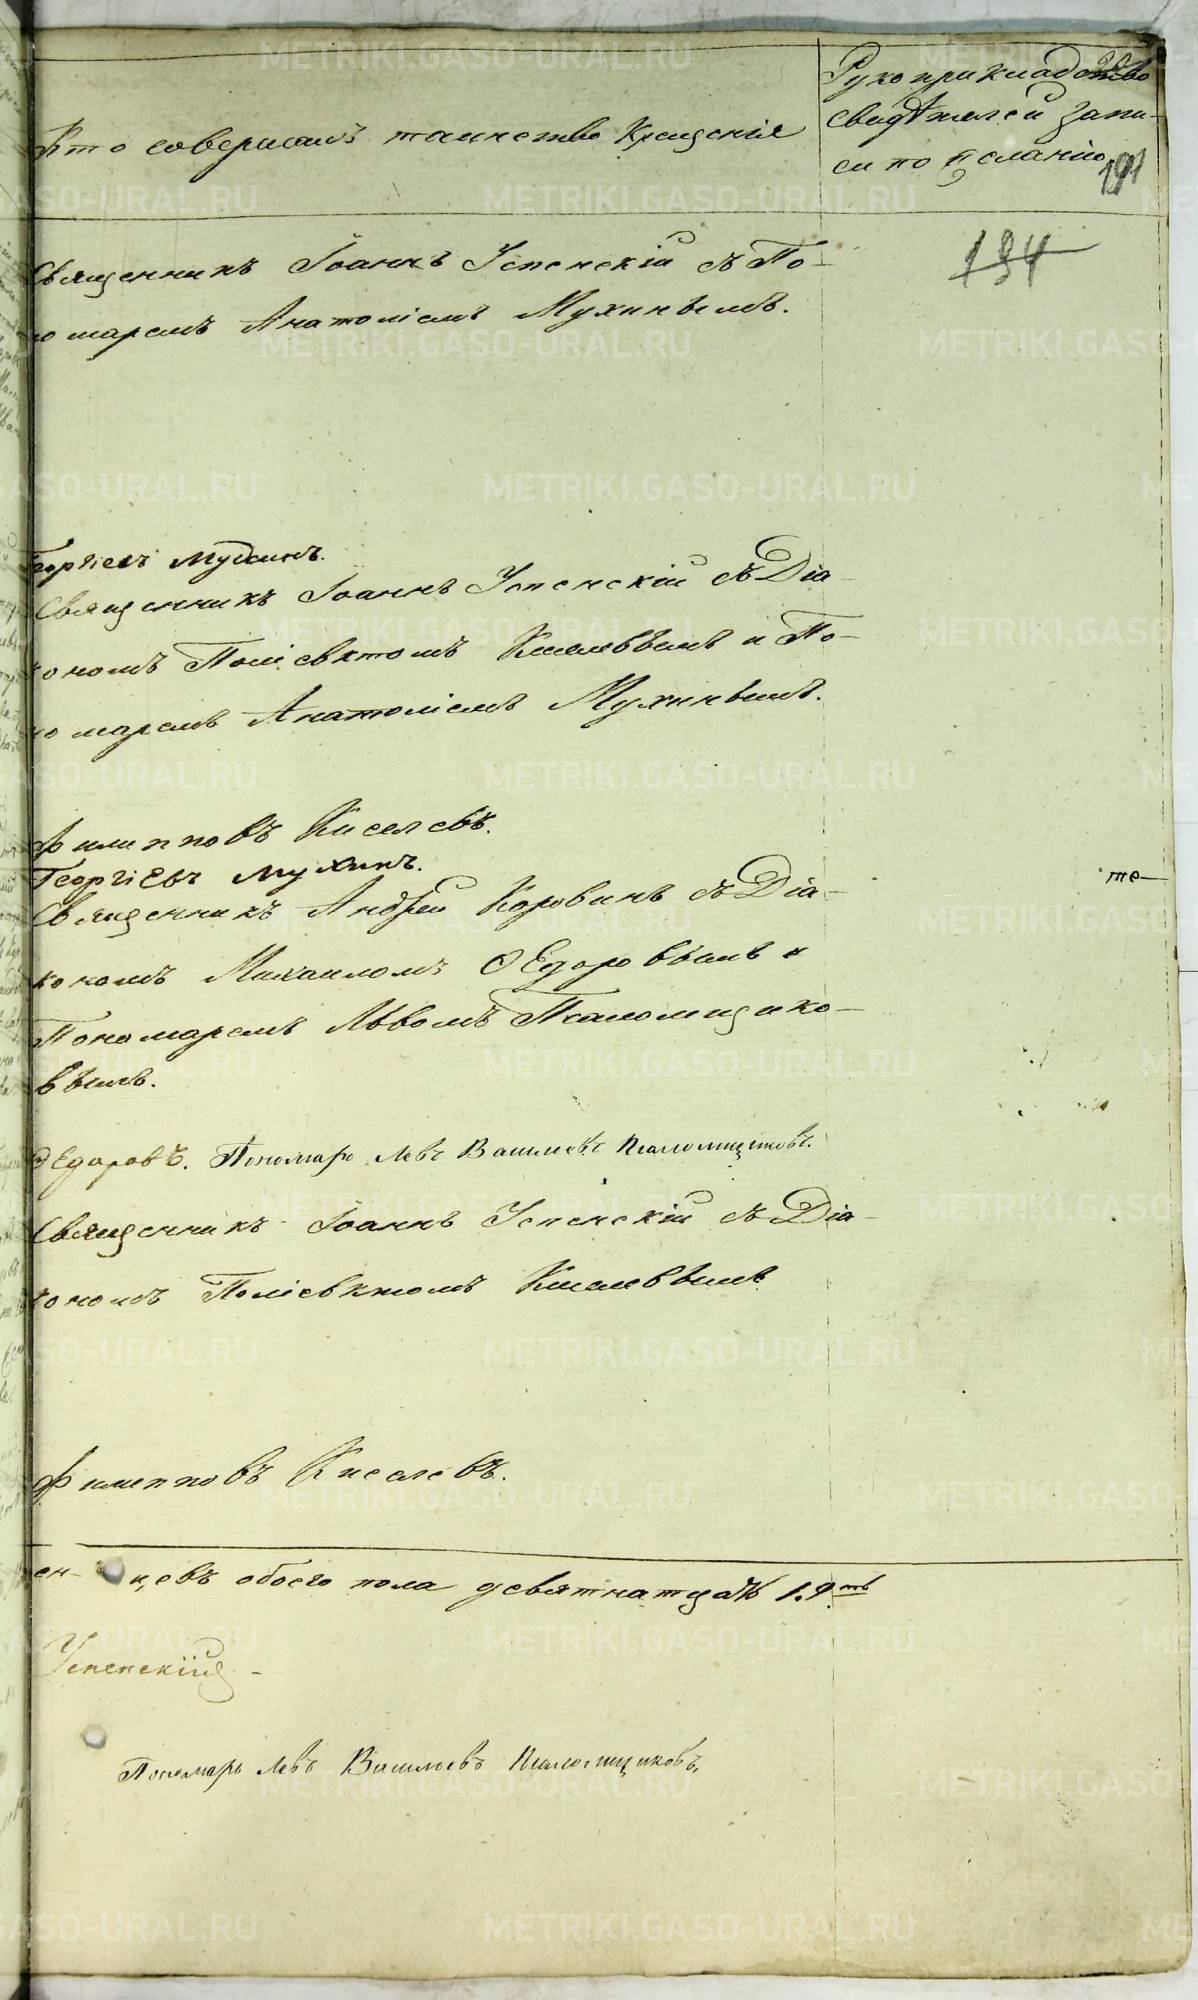 Кто совершалъ таинство Крещенія
Рукоприкладство
свидѣтелей запи-
си по желанію
191
194
Священникъ Іоаннъ Успенскій съ По-
номаремъ Анатоліемъ Мухинымъ.
Георгіевъ Мухинъ.
Священникъ Іоаннъ Успенскій съ Діа-
кономъ Поліевктомъ Киселевымъ и По-
номаремъ Анатоліемъ Мухинымъ.
Филипповъ Киселевъ.
Георгіевъ Мухинъ.
Священникъ Андрей Коровинъ съ Діа-
кономъ Михаиломъ Ѳедоровымъ и
Пономаремъ Львомъ Псаломщико-
вымъ.
Ѳедоровъ. Пономарь Левъ Васильевъ Псаломщиковъ.
Священникъ Іоаннъ Успенскій съ Діа-
кономъ Поліевктомъ Киселевымъ
Филипповъ Киселевъ.
ен-цевъ обоего пола девятнатцать 19.ть
Успенскій
Пономарь Левъ Васильевъ Псаломщиковъ.
те-
METRIKI.GASO-URAL.RU